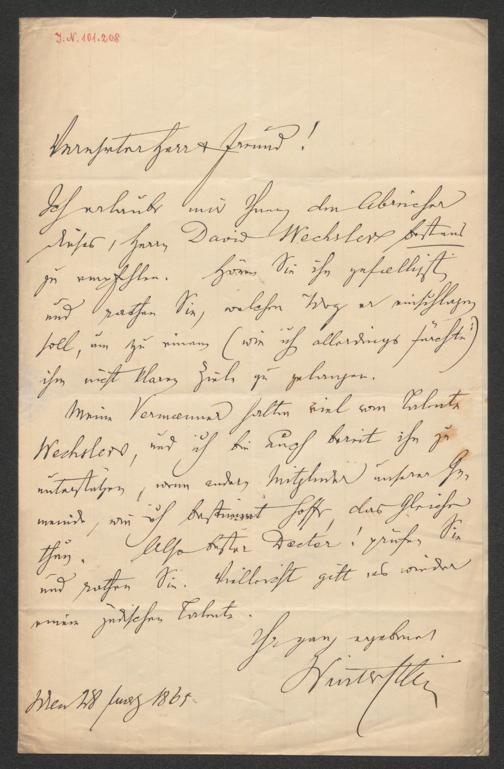 J.N. 101.208
Verehrter Herr & Freund!
Ich erlaube mir Ihnen den
dieses, Herrn David Wechsler bestens
zu empfehlen. Hören Sie ihn gefälligst
und rathen Sie, welchen Weg er einschlagen
soll, um zu einem (wie ich allerdings fürchte)
ihm nicht klaren Ziele zu gelangen.
Meine halten viel vom Talente
Wechslers, und ich bin auch bereit ihn zu
unterstützen, wenn andere Mitglieder unserer Ge-
meinde, wie ich bestimmt hoffe, das Gleiche
thun. Also bester Doctor! prüfen Sie
und rathen Sie. Vielleicht gilt es wieder
einem jüdischen Talente.
Ihr ganz ergebener
Winterstein
Wien 28 1865